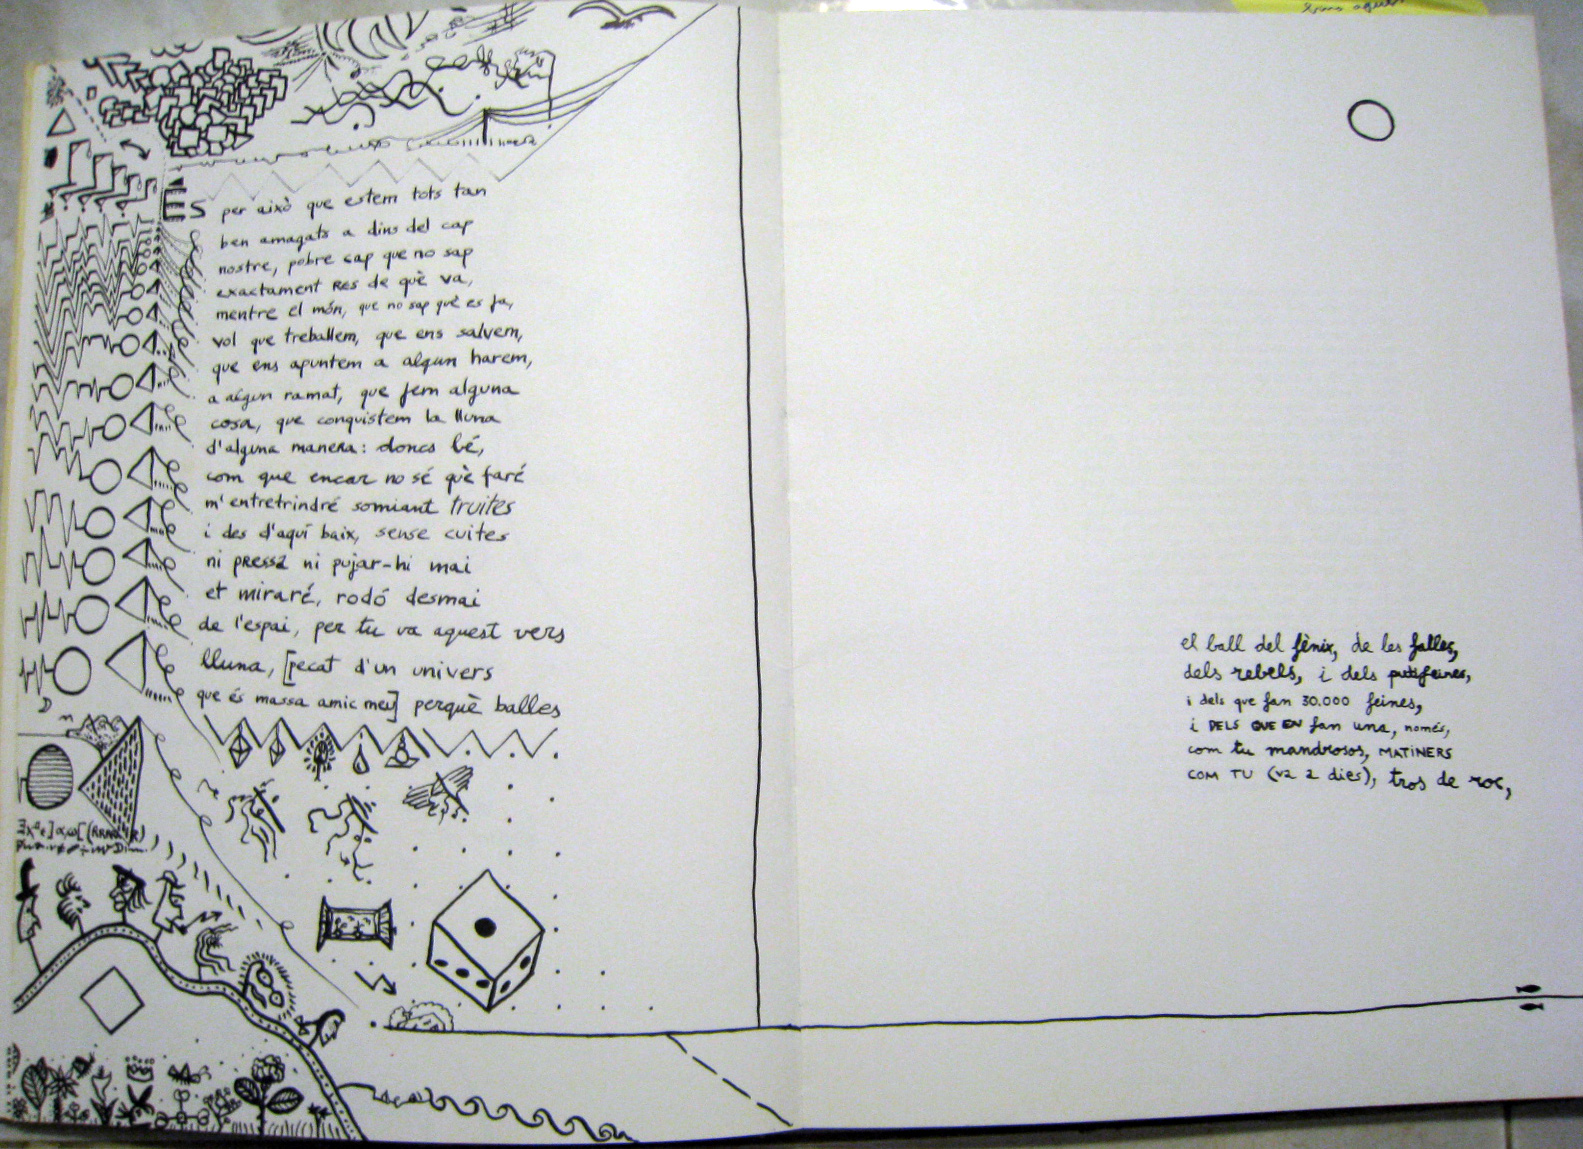 És per això que estem tots tan
ben amagats a dins del cap
nostre, pobre cap que no sap
exactament RES de què va,
mentre el món, que no sap què es fa,
vol que treballem, que ens salvem,
que ens apuntem a algun harem,
a algun ramat, que fem alguna
cosa, que conquistem la lluna
d'alguna manera: doncs bé,
com que encar no sé què faré
m'entretrindré somiant truites
i des d'aquí baix, sense cuites
ni pressa ni pujar-hi mai
et miraré, rodó desmai
de l'espai, per tu va aquest vers
lluna, [pecat d'un univers
que és massa amic meu] perquè balles
D
el ball del fènix, de les falles,
dels rebels, i dels putifeines,
i dels que fan 30.000 feines,
i DELS QUE EN fan una, només,
com tu mandrosos, MATINERS
COM TU (va 2 dies), tros de roc,